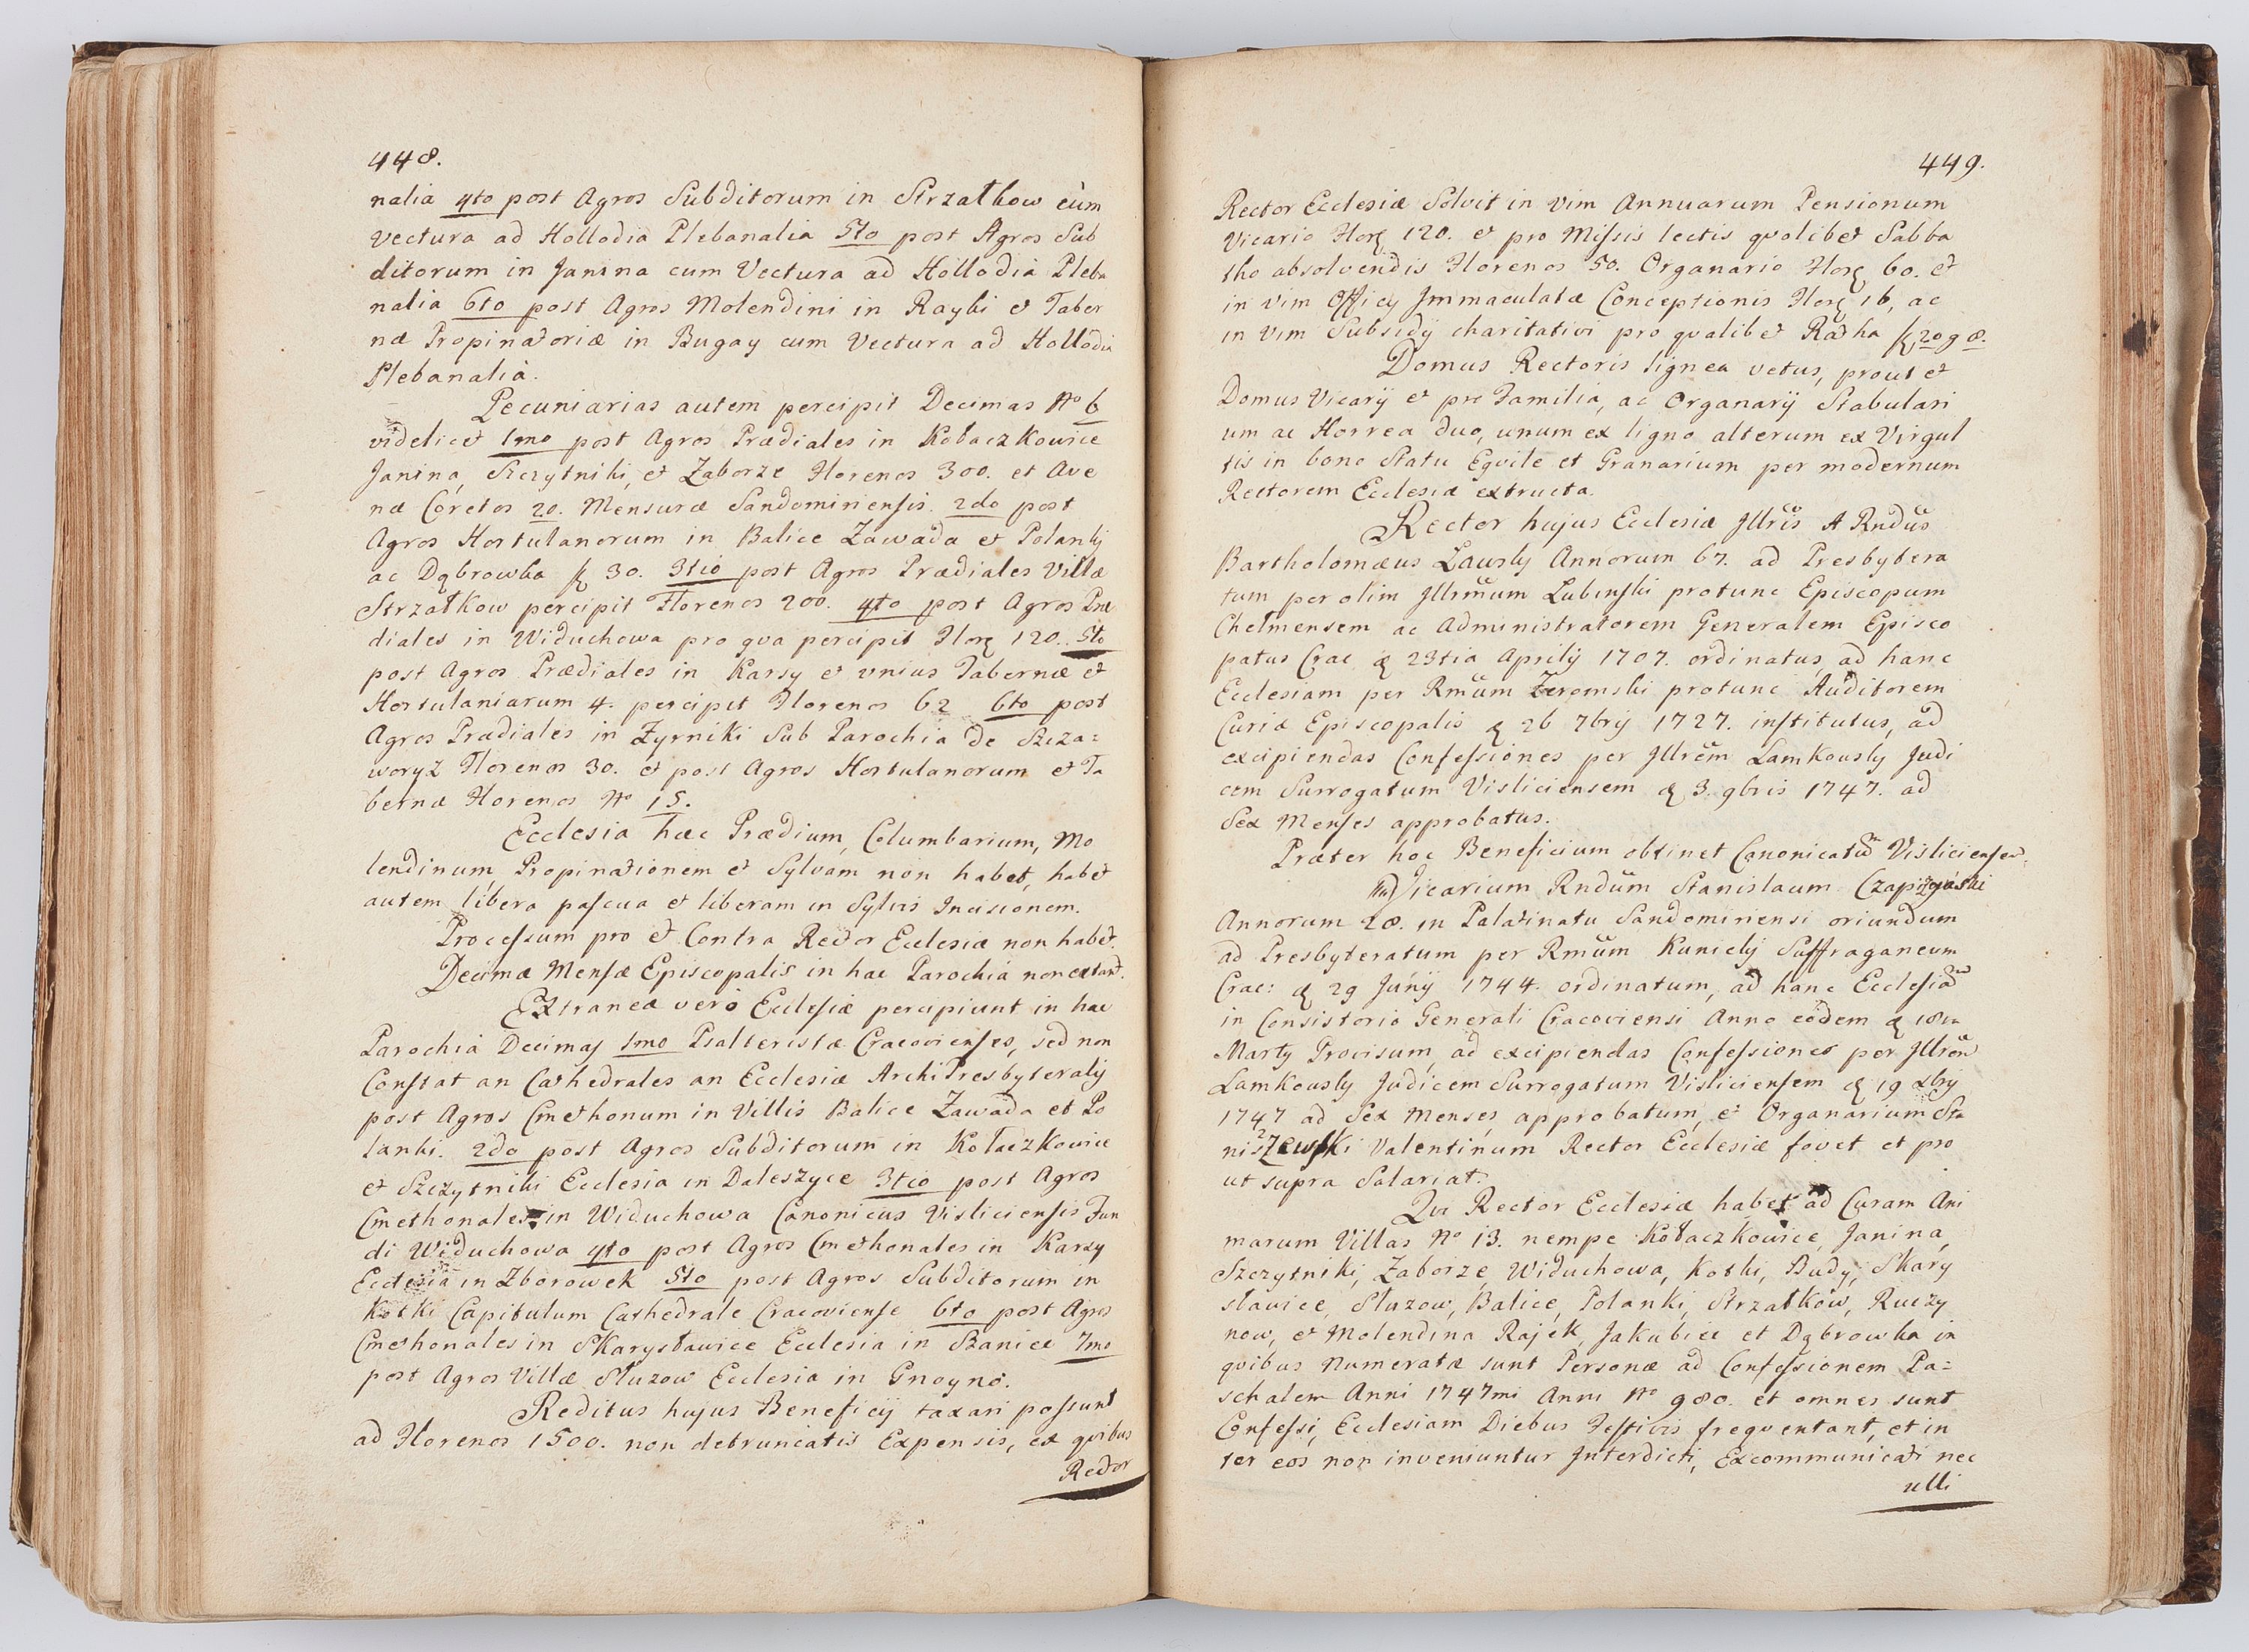 448.
nalia 4to post Agros Subditorum in Strzałkow cùm
vectura ad Hollodia Plebanalia 5to post Agros Sub
ditorum in Janina cum Vectura ad Hollodia Pleba
nalia 6to post Agros Molendini in Rayki et Taber
næ Propinatoriæ in Bugay cum Vectura ad Hollodia
Plebanalia.
Pecuniarias autem percipit Decimas No 6
videlicet 1mo post Agros Prædiales in Kołaczkowice
Janina, Szczytniki, et Zaborze Florenos 300. et Ave
næ Coretos 20. Mensuræ Sandomiriensis. 2do post
Agros Hortulanorum in Balice Zawada et Polanky
ac Dąbrowka 30. 3tio post Agros Prædiales Villæ
Strzałkow percipit Florenos 200. 4to post Agros Præ
diales in Widuchowa pro qva percipit Flor 120. 5to
post Agros Prædiales in Karsy et vnius Tabernæ et
Hortulaniarum 4. percipit Florenos 62 6to post
Agros Prædiales in Zyrniki Sub Parochia de Szcza=
woryz Florenos 30. et post Agros Hortulanorum et Ta
bernæ Florenos No 15.
Ecclesia hæc Prædium, Columbarium, Mo
lendinum, Propinationem et Sylvam non habet, habet
autem libera pascua et liberam in Sylvis Incisionem.
Processum pro et Contra Rector Ecclesiæ non habet.
Decimæ Mensæ Episcopalis in hac Parochia non extant.
Extraneæ verò Ecclesiæ percipiunt in hac
Parochia Decimas 1mo Psalteristæ Cracovienses, sed non
Constat an Cathedrales an Ecclesiæ ArchiPresbyteralis
post Agros Cmethonum in Villis Balice Zawada et Po
lanki. 2do post Agros Subditorum in Kołaczkowice
et Szczytniki Ecclesia in Daleszyce 3tio post Agros
Cmethonales in Widuchowa Canonicus Visliciensis Fun
di Widuchowa 4to post Agros Cmethonales in Karsy
Ecclesia in Zborowek 5to post Agros Subditorum in
Kotki Capitulum Cathedrale Cracoviense 6to post Agros
Cmethonales in Skarysławice Ecclesia in Szaniec 7mo
post Agros Villæ Słuzow Ecclesia in Gnoyno.
Reditus hujus Beneficij taxari possunt
ad Florenos 1500. non detruncatis Expensis, ex qvibus
Rector
449.
Rector Ecclesiæ Solvit in vim Annuarum Pensionum
Vicario Flor 120. et pro Missis lectis qvolibet Sabba
tho absolvendis Florenos 50. Organario Flor 60. et
in vim Officij Immaculatæ Conceptionis Flor 16, ac
in vim Subsidij charitativi pro qvalibet Ratha 20 g 8.
Domus Rectoris lignea vetus, prout et
Domus Vicarij et pro Familia, ac Organarij Stabulari
um ac Horrea duo, unum ex ligno alterum ex Virgul
tis in bono Statu Eqvile et Granarium per modernum
Rectorem Ecclesiæ extructa.
Rector hujus Ecclesiæ Jllris A Rndus
Bartholomæus Lawsky Annorum 67. ad Presbytera
tum per olim Jllrmum Lubinski protunc Episcopum
Chelmensem ac Administratorem Generalem Episco
patus Crac 23tia Aprilij 1707. ordinatus, ad hanc
Ecclesiam per Rmum Zeromski protunc Auditorem
Curiæ Episcopalis 26 7brij 1727. institutus, ad
excipiendas Confessiones per Jllrem Lamkowsky Judi
cem Surrogatum Visliciensem 3. 9bris 1747. ad
Sex Menses approbatus.
Præter hoc Beneficium obtinet Canonicatum Visliciensem.
Vicarium Rndum Stanislaum
Annorum 28. in Palatinatu Sandomiriensi oriundum
ad Presbyteratum per Rmum Kunicky Suffraganeum
Crac: 29 Junij 1744. ordinatum, ad hanc Ecclesiam
in Consistorio Generali Cracoviensi Anno eodem 18va
Martij Provisum, ad excipiendas Confessiones per Jllrem
Lamkowsky Judicem Surrogatum Visliciensem 19 xbrij
1747 ad Sex Menses approbatum, et Organarium Sta
niszewski Valentinum Rector Ecclesiæ fovet et pro
ut supra Salariat.
Qvi Rector Ecclesiæ habet ad Curam Ani
marum Villas No 13. nempe Kołaczkowice, Janina,
Szczytniki, Zaborze, Widuchowa, Kotki, Budy, Skary
sławice, Słuzow, Balice, Polanki, Strzałków, Ruczy
now, et Molendina Rajek, Jakubice et Dąbrowka in
qvibus Numeratæ sunt Personæ ad Confessionem Pa=
schalem Anni 1747mi Anni No 980. et omnes sunt
Confessi, Ecclesiam Diebus Festivis freqventant, et in
ter eos non inveniuntur Interdicti, Excommunicati nec
ulli